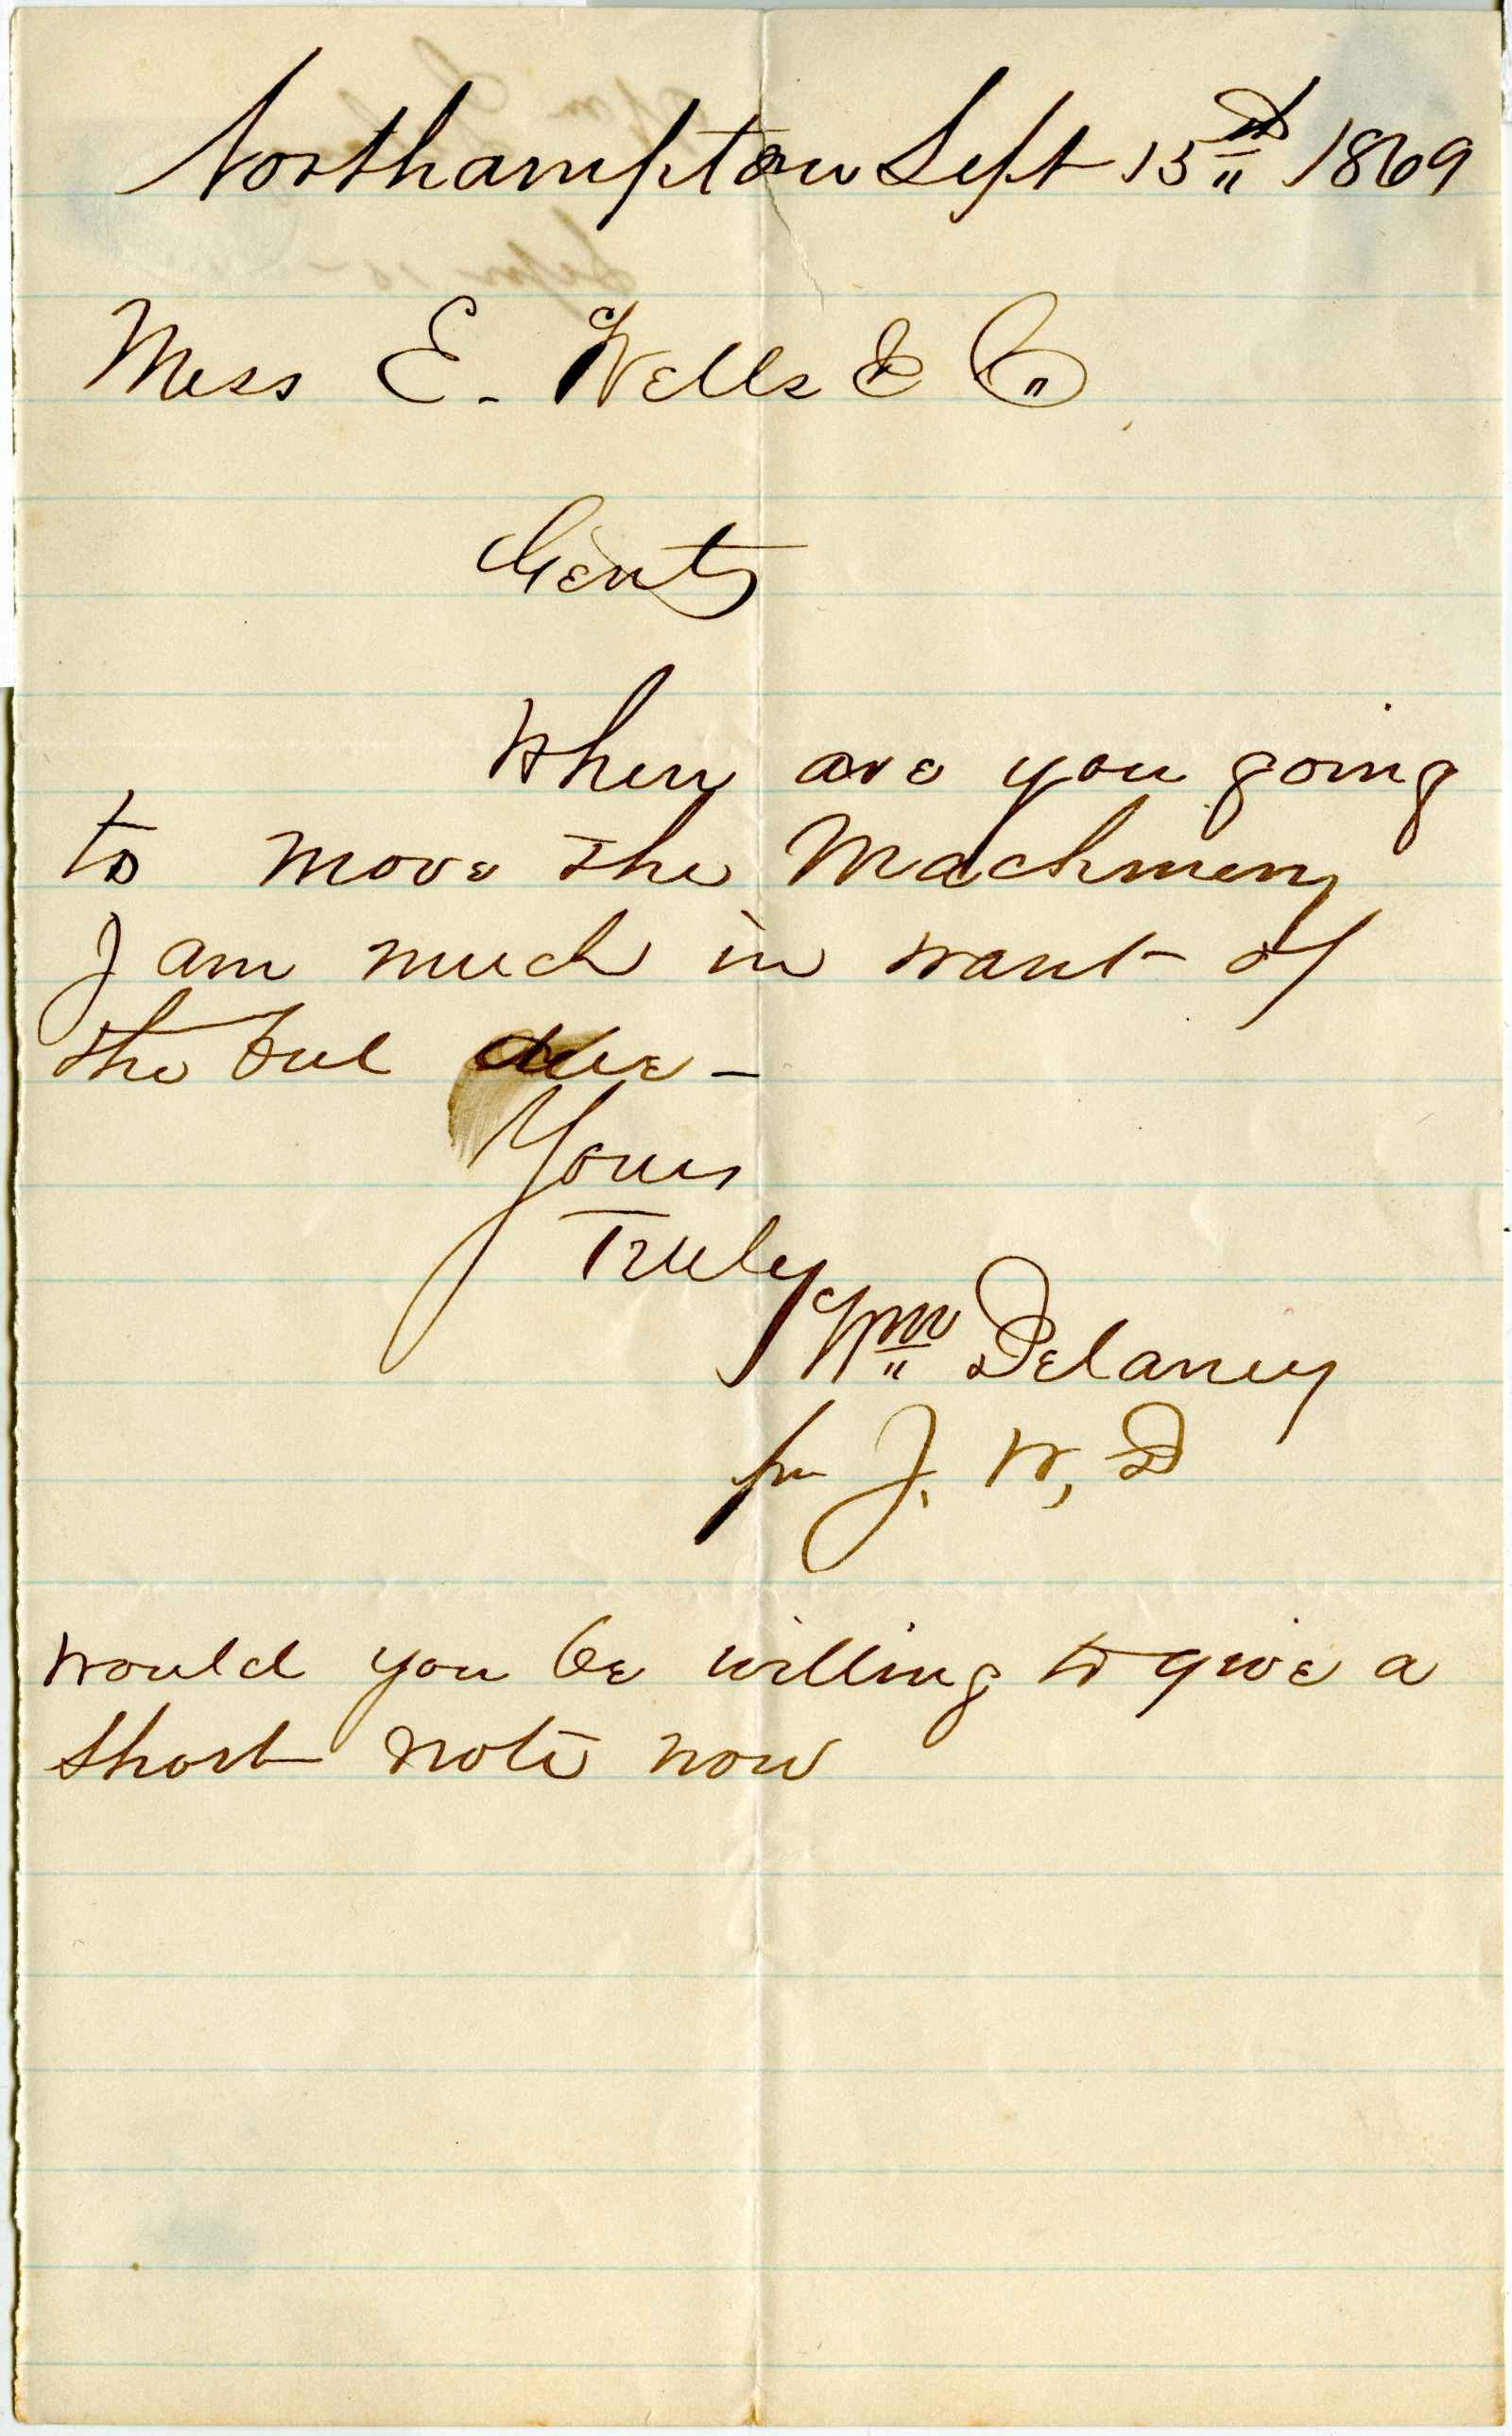 Northampton Sept 15th 1869
Mess E. Wells & Co
Gents
When are you going
to move the Machinery
I am much in want of
the bal due -
Yours
Truly
Wm Delaney
per J. W, D
would you be willing to give a
short note now